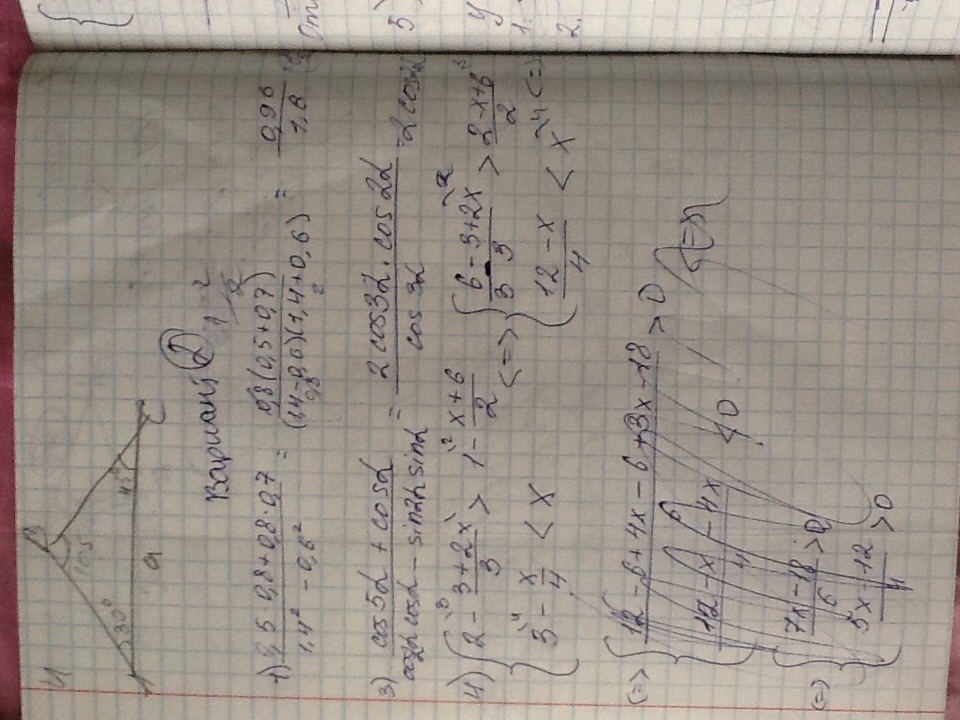 B
105
30°
45°
A
a
C
Вариант 2
1) 0,5·0,8+0,8·0,7 / 1,4² - 0,6² = 0,8(0,5+0,7) / (1,4-0,6)(1,4+0,6) = 0,96 / 1,8
3) cos5α + cosα / cos2α cosα - sin2α sinα = 2 cos3α · cos2α / cos3α = 2 cos2α
4) { 2 - 3+2x / 3 > 1 - x+6 / 2
3 - x / 4 < x
<=> { 6 - 3+2x / 3 > 2-x+6 / 2
12-x / 4 < x <=>
<=> { 12-6+4x-6+3x-18 / > 0
12-x-4x / 4 < 0
<=> { 7x-18 / 6 > 0
5x-12 / 4 > 0
5)
1.
2.